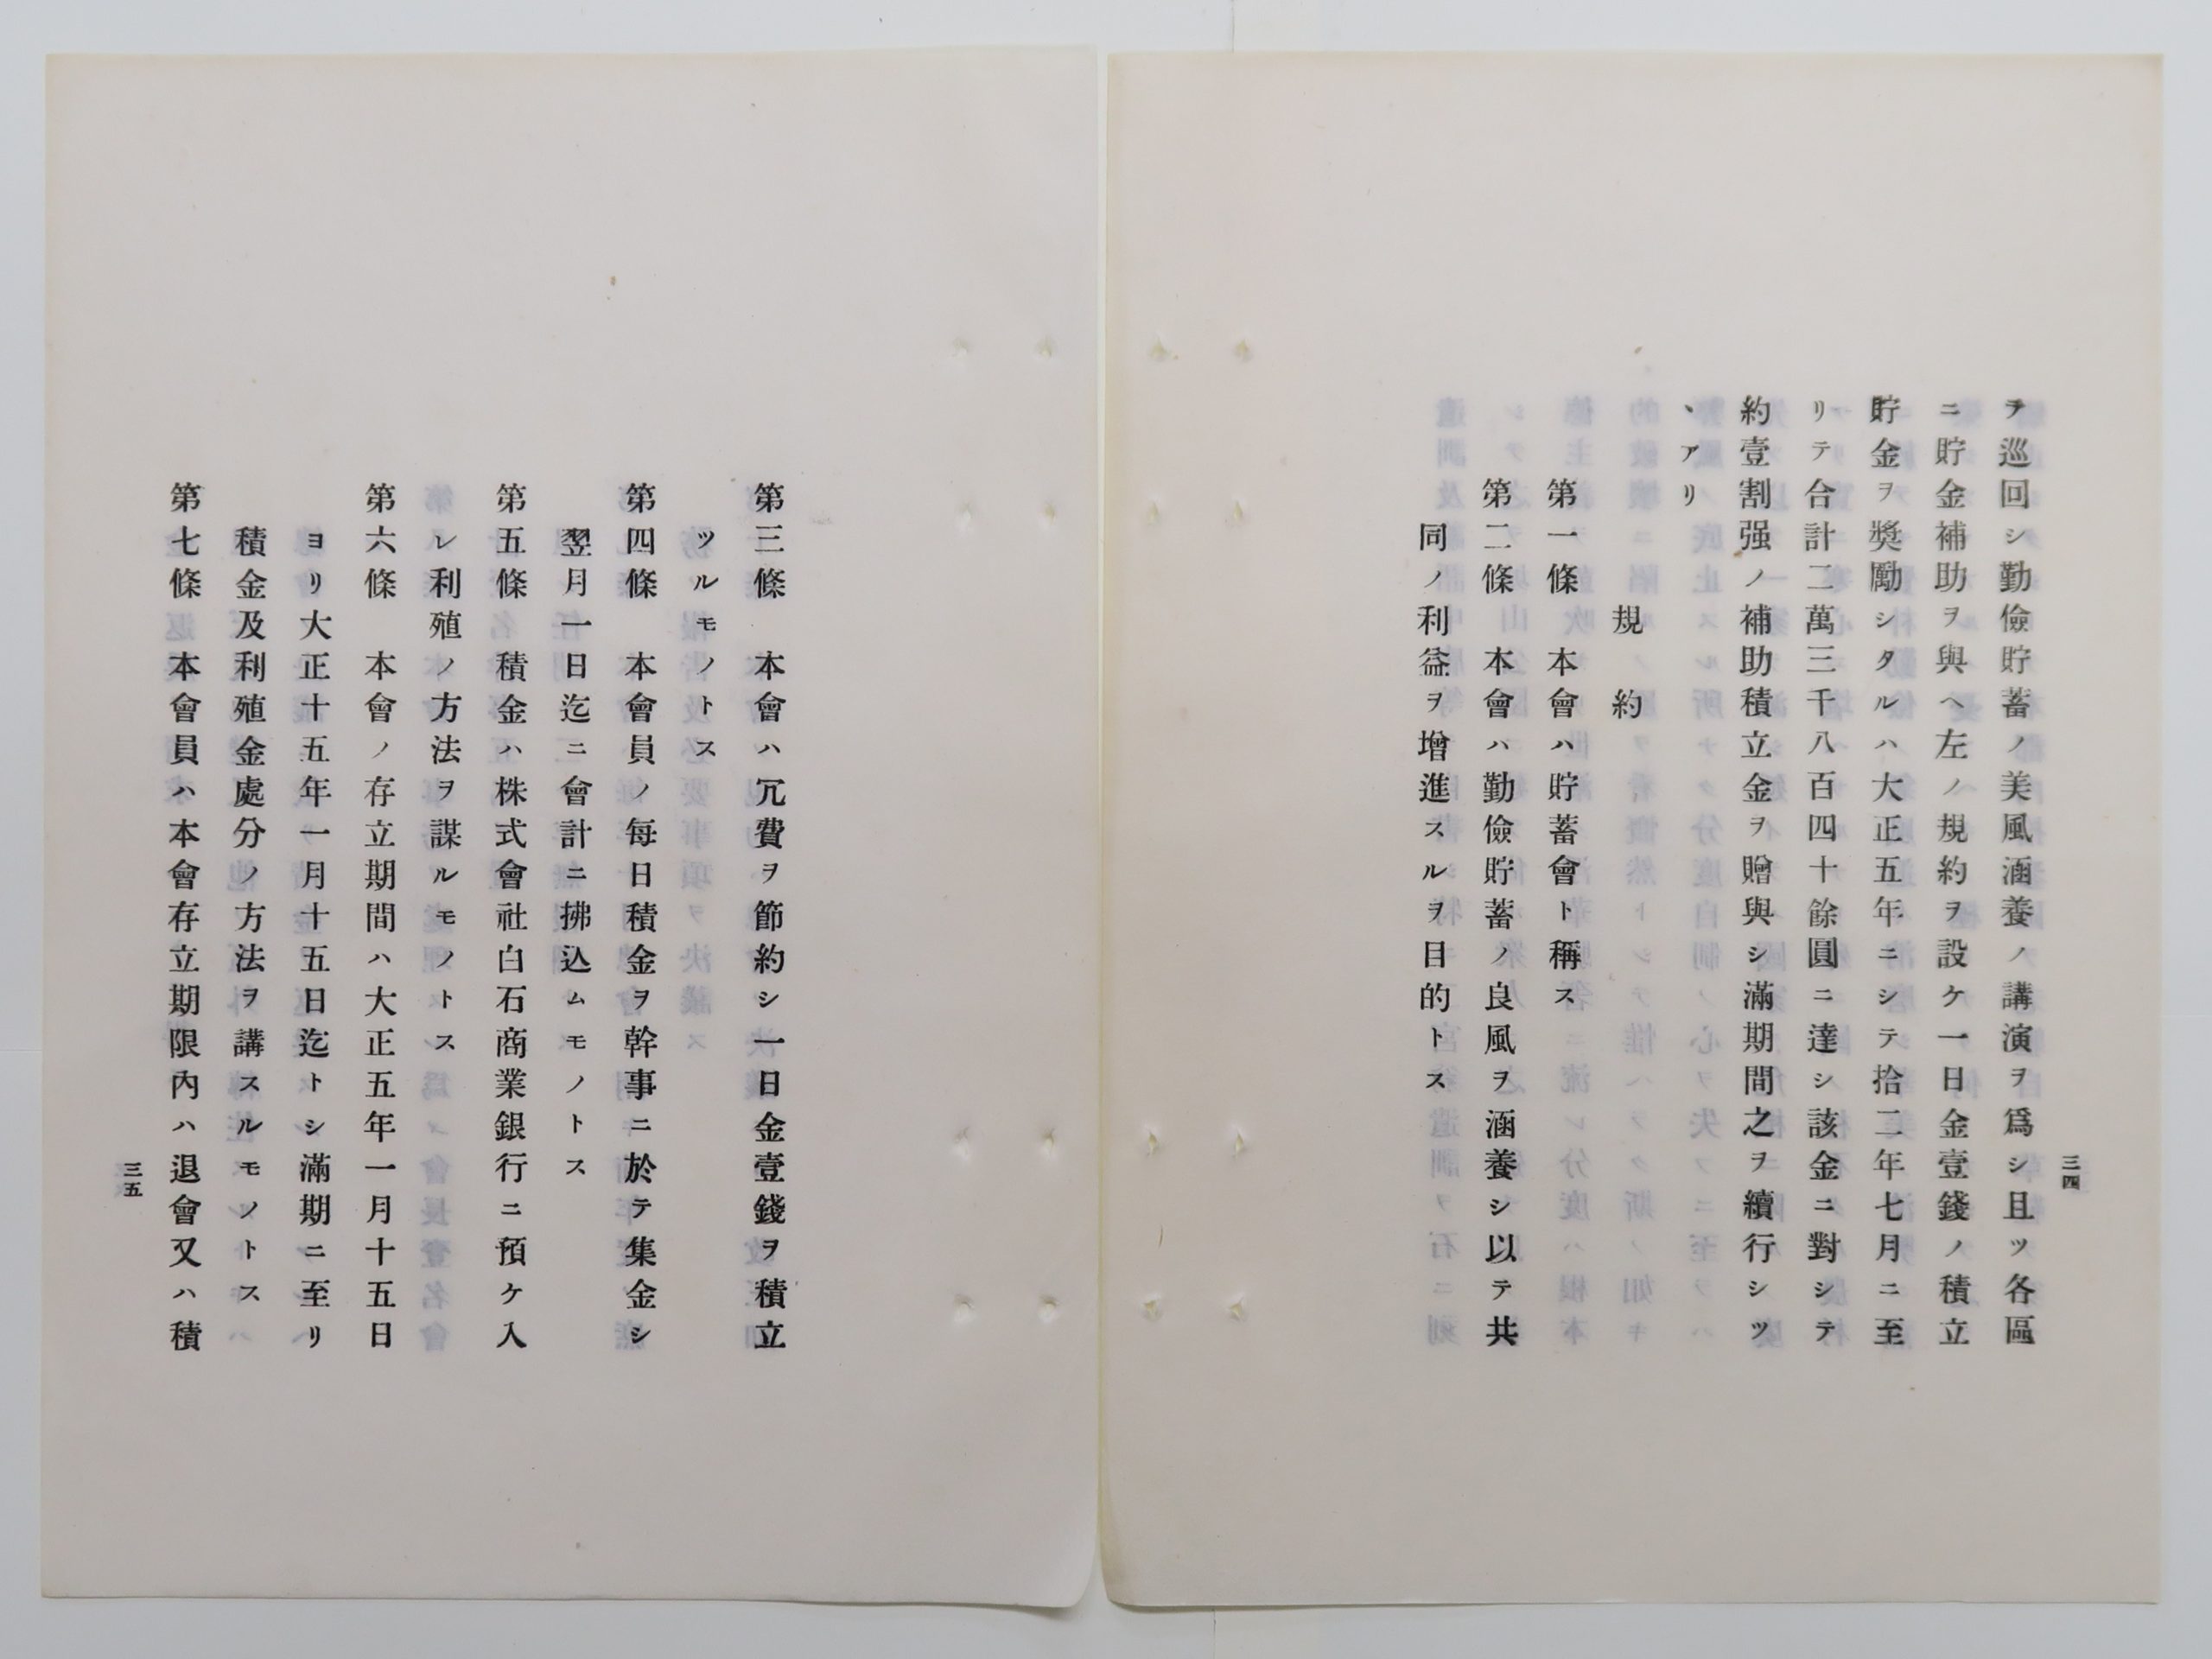 三四
テ巡回シ勤儉貯蓄ノ美風涵養ノ講演ヲ爲シ且ツ各區
ニ貯金補助ヲ與ヘ左ノ規約ヲ設ケ一日金壹錢ノ積立
貯金ヲ奬勵シタルハ大正五年ニシテ拾二年七月ニ至
リテ合計二萬三千八百四十餘圓ニ達シ該金ニ對シテ
約壹割强ノ補助積立金ヲ贈與シ滿期間之ヲ續行シツ
ヽアリ
規約
第一條　本會ハ貯蓄會ト稱ス
第二條　本會ハ勤儉貯蓄ノ良風ヲ涵養シ以テ共
同ノ利益ヲ增進スルヲ目的トス
第三條　本會ハ冗費ヲ節約シ一日金壹錢ヲ積立
ツルモノトス
第四條　本會員ノ每日積金ヲ幹事ニ於テ集金シ
翌月一日迄ニ會計ニ拂込ムモノトス
第五條　積金ハ株式會社白石商業銀行ニ預ケ入
レ利殖ノ方法ヲ謀ルモノトス
第六條　本會ノ存立期間ハ大正五年一月十五日
ヨリ大正十五年一月十五日迄トシ滿期ニ至リ
積金及利殖金處分ノ方法ヲ講スルモノトス
第七條　本會員ハ本會存立期限內ハ退會又ハ積
三五